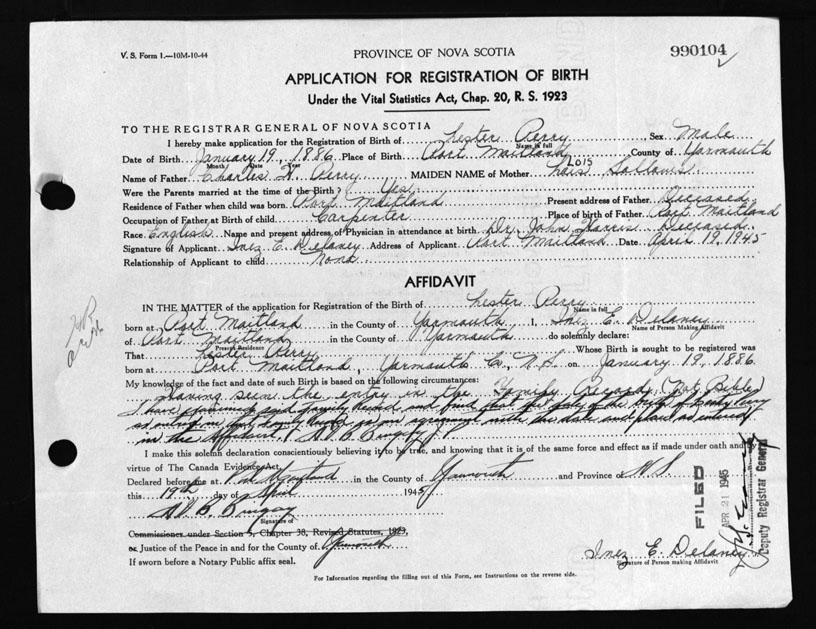 V. S. Form 1.—10M-10-44
PROVINCE OF NOVA SCOTIA
990104
APPLICATION FOR REGISTRATION OF BIRTH
Under the Vital Statistics Act, Chap. 20, R. S. 1923
TO THE REGISTRAR GENERAL OF NOVA SCOTIA
I hereby make application for the Registration of Birth of Lester Perry Sex Male
Name in full
Date of Birth January 19, 1886 Place of Birth Port Maitland County of Yarmouth
Month Date Year
Lois
Name of Father Charles H. Perry MAIDEN NAME of Mother Lois
Were the Parents married at the time of the Birth? Yes
Residence of Father when child was born Port Maitland Present address of Father Deceased
Occupation of Father at Birth of child Carpenter Place of birth of Father Port Maitland
Race English Name and present address of Physician in attendance at birth Dr. John Harris Deceased
Signature of Applicant Inez E. Delaney Address of Applicant Port Maitland Date April 19, 1945
Relationship of Applicant to child None
AFFIDAVIT
IN THE MATTER of the application for Registration of the Birth of Lester Perry
Name in full
born at Port Maitland in the County of Yarmouth I, Inez E. Delaney
Name of Person Making Affidavit
of Port Maitland in the County of Yarmouth do solemnly declare:
Present Residence
That Lester Perry Whose Birth is sought to be registered was
born at Port Maitland, Yarmouth Co., N.S. on January 19, 1886
My knowledge of the fact and date of such Birth is based on the following circumstances:
Having seen the entry in the Family Record (Not Bible)
I have said family record and find that the of the birth of Perry
so in that family record is in agreement with the date and place as entered
in the Affidavit.
I make this solemn declaration conscientiously believing it to be true, and knowing that it is of the same force and effect as if made under oath and by
virtue of The Canada Evidence Act.
Declared before me at Port Maitland in the County of Yarmouth and Province of N.S.
this 19th day of April 1945
Signature of
Commissioner under Section 5, Chapter 38, Revised Statutes, 1923,
or Justice of the Peace in and for the County of Yarmouth
If sworn before a Notary Public affix seal.
Inez E. Delaney
Signature of Person making Affidavit
FILED
APR 21 1945
Deputy Registrar General
For Information regarding the filling out of this Form, see Instructions on the reverse side.